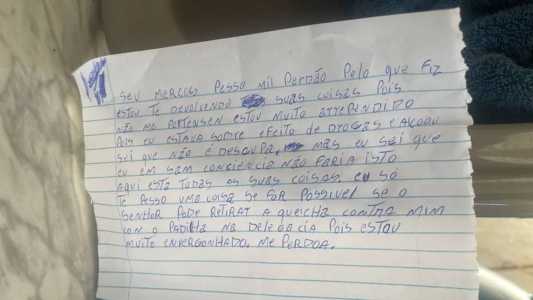 SEU MARCOS PESSO MIL PERDÃO PELO QUE FIZ
ESTOU TE DEVOLVENDO SUAS COISAS POIS
NÃO ME PERTENSEN ESTOU MUITO ARREPENDIDO
POIS EU ESTAVA SOBRE EFEITO DE DROGAS E ALCOOU
SEI QUE NÃO É DESCUPA, MAS EU SEI QUE
EU EM SAM CONCIÊNCIA NÃO FARIA ISTO
AQUI ESTA TODAS AS SUAS COISAS, EU SÓ
TE PESSO UMA COISA SE FOR POSSIVEL SE O
SENHOR PODE RETIRAR A QUEICHA CONTRA MIM
CON O PADILHA NA DELEGACIA POIS ESTOU
MUITO ENVERGONHADO, ME PERDOA.